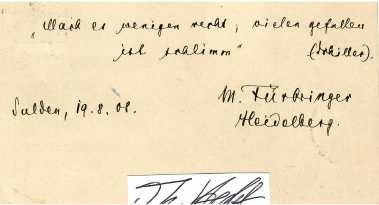 „Mach es wenigen recht, vielen gefallen
ist schlimm" (Schiller).
Sulden, 19. 8. 08.
M. Fürbringer
Heidelberg.
Th.